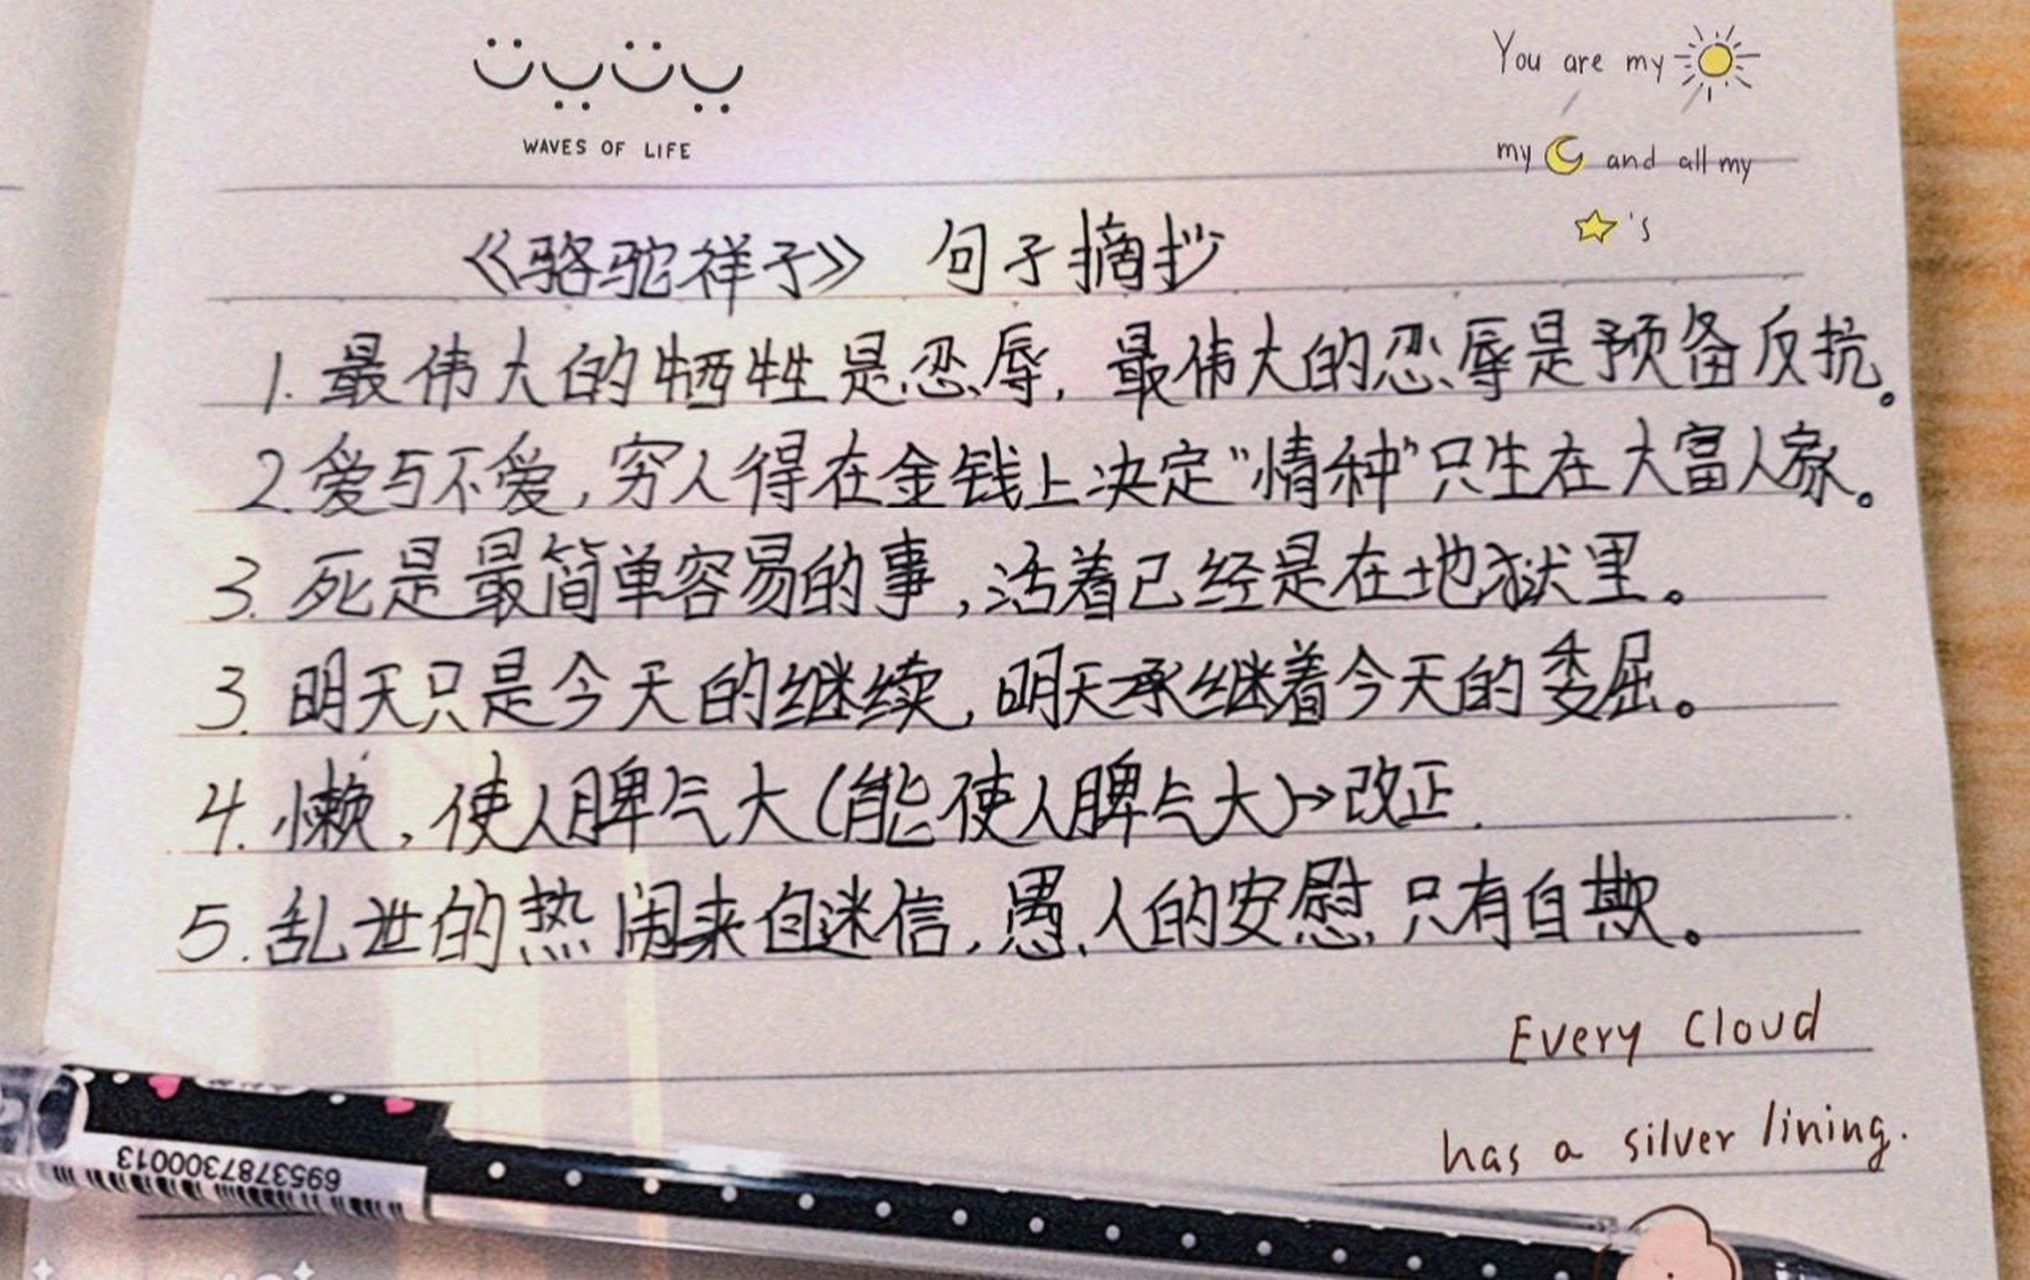 WAVES OF LIFE
You are my
my and all my
's
《骆驼祥子》 句子摘抄
1. 最伟大的牺牲是忍辱, 最伟大的忍辱是预备反抗。
2. 爱与不爱, 穷人得在金钱上决定“情种”只生在大富人家。
3. 死是最简单容易的事, 活着已经是在地狱里。
3. 明天只是今天的继续, 明天承继着今天的委屈。
4. 懒, 使人脾气大(能使人脾气大)→改正.
5. 乱世的热闹来自迷信, 愚人的安慰只有自欺。
Every Cloud
has a silver lining.
6953787300013